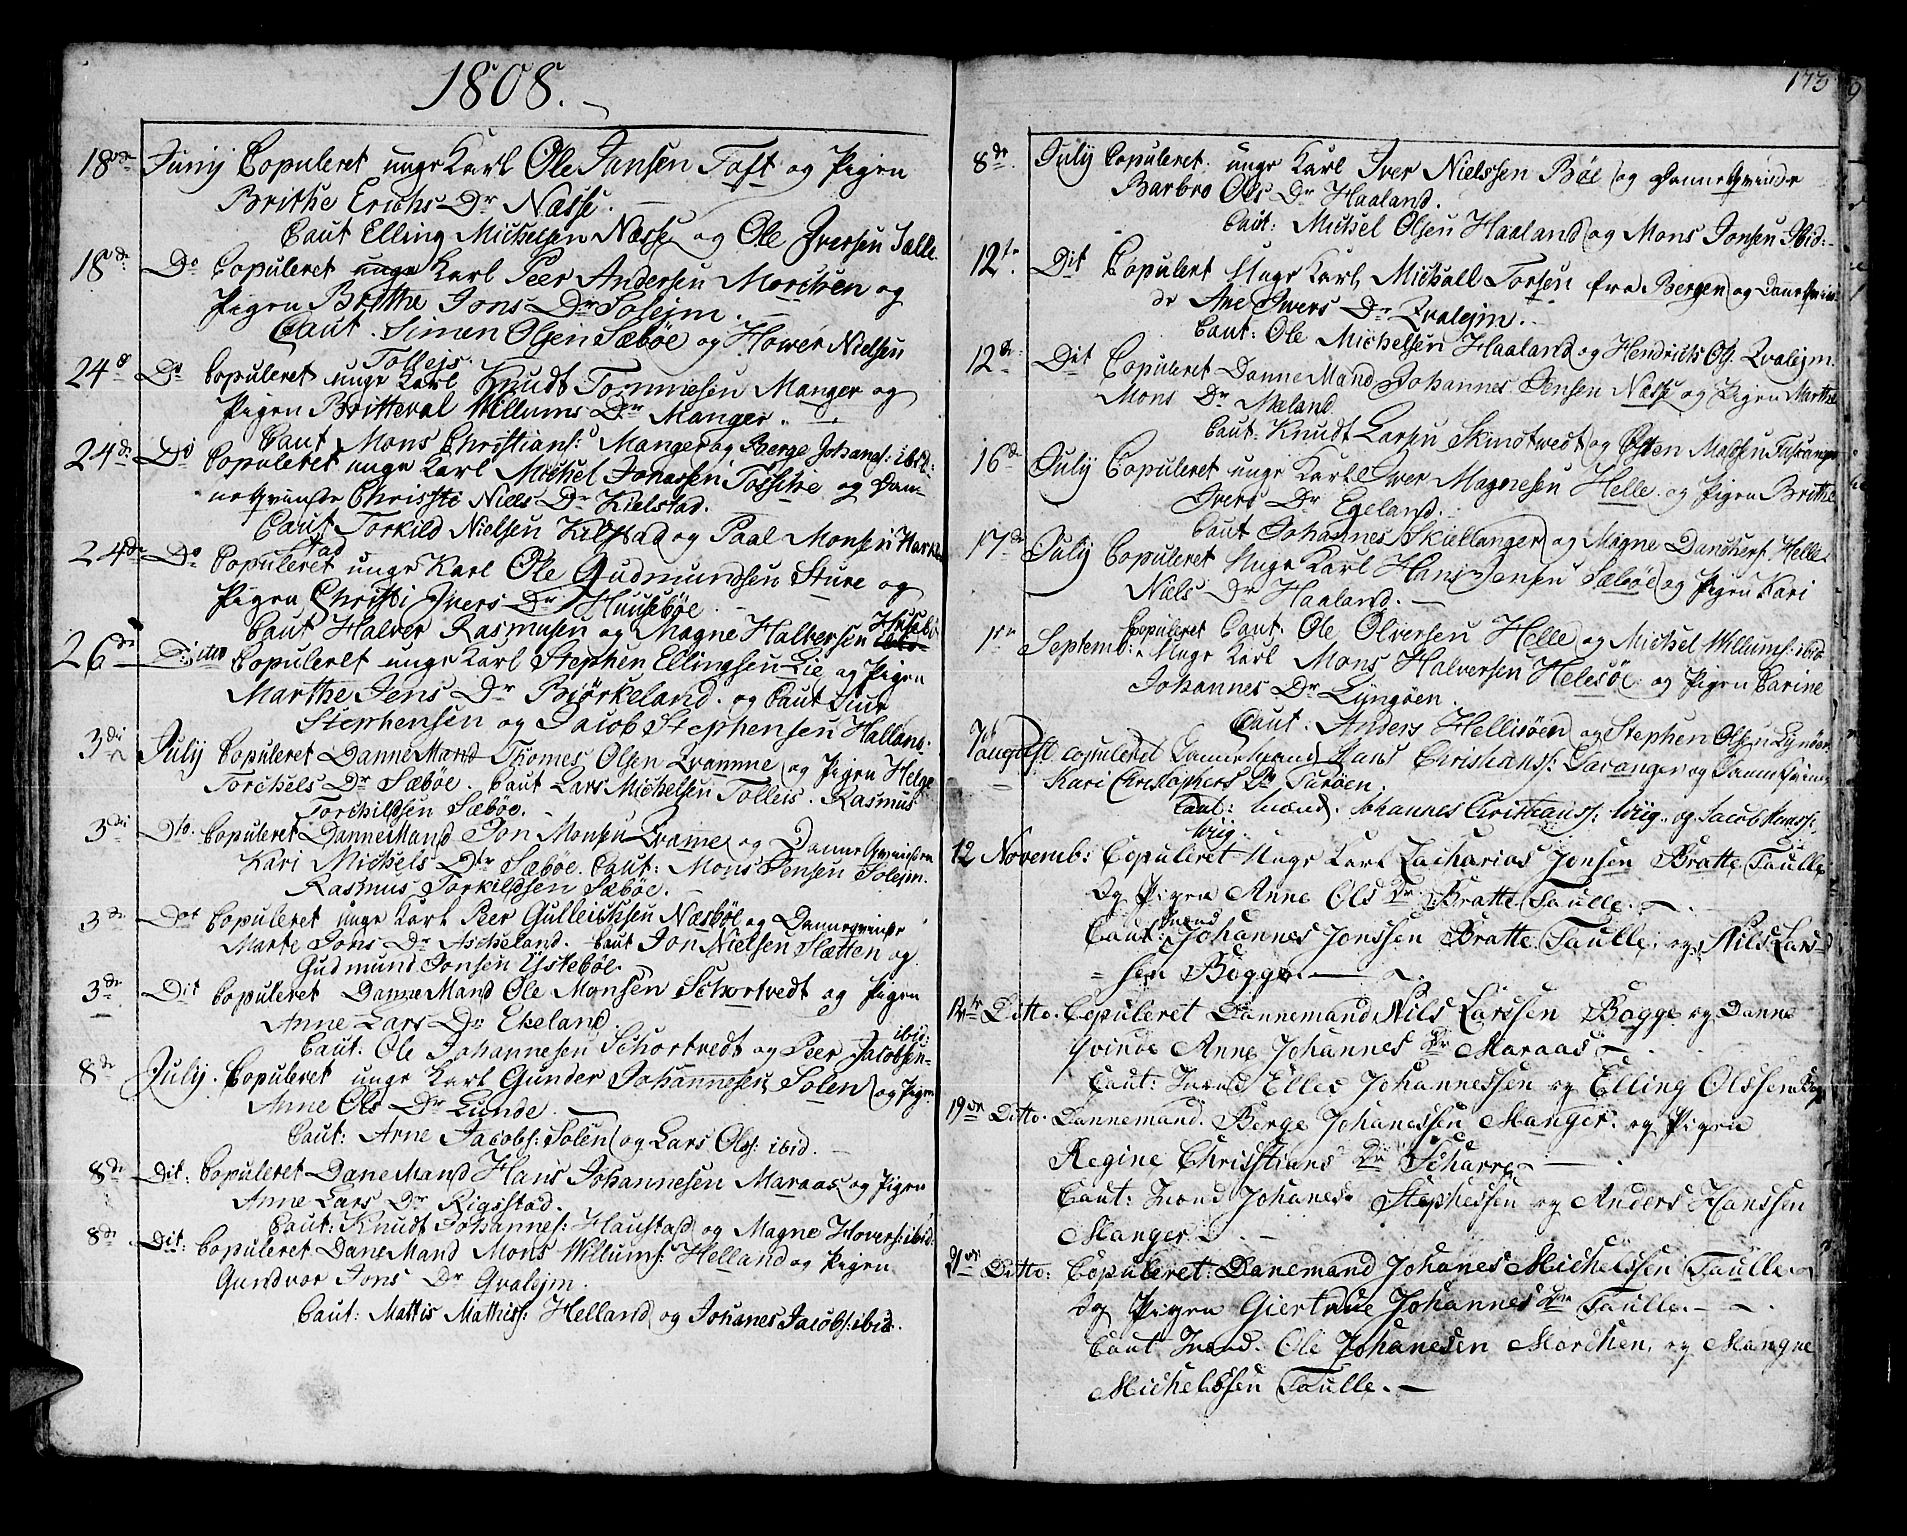 1808.
18de Junij Copuleret unge Karl Ole Jansen Toft og Pigen
Brithe Erichs Dr Næsse.
Caut Elling Michelsen Næsse og Ole Iversen Sælle
18de Do Copuleret unge Karl Peer Andersen Morchen og
Pigen Brithe Jons Dr Solejm.
Caut. Simen Olsen Sæbøe og Hower Nielsen
Tolleis.
24de Do Copuleret unge Karl Knudt Tommesen Manger og
Pigen Britteval Willums Dr Manger.
Caut Mons Christians: Manger og Berge Johanes: ibid:
24de Do Copuleret unge Karl Michel Jonassen Tofsitre og Dan-
neqvinde Christi Niels Dr Kielstad.
Caut Torkild Nielsen Kilstad og Paal Monsen Mark-
stad
24de Do Copuleret unge Karl Ole Gudmundsen Sture og
Pigen Christi Ivers Dr Huusebøe.
Caut Halver Rasmusen og Magne Halversen Husebø
26de Ditto Copuleret unge Karl Stephen Ellingsen Lie og Pigen
Marthe Jens Dr Biørkeland. og Caut Siur
Stephensen og Jacob Stephensen Halland.
3die July Copuleret DanneMand Thomes Olsen Qvamme og Pigen Helge
Torchels Dr Sæbøe. Caut Lars Michelsen Tolleis. Rasmus
Torchildsen Sæbøe.
3die Dto. Copuleret DanneMand Jon Monsen Qvamme og DanneQvinden
Kari Michels Dtr Sæboe. Caut: Mons Jensen Solejm.
Rasmus Torkildsen Sæbøe.
3de Dot Copuleret unge Karl Peer Gulleichsen Næsbøe og Danneqvinde
Marte Jons Dr Ascheland. Caut Jon Nielsen Slætten og
Gudmund Jonsen Ystebøe.
3de Dit Copuleret DanneMand Ole Monsen Schortvedt og Pigen
Anne Lars Dr Ekeland.
Caut: Ole Johannesen Schortvedt og Peer Jacobsen ibid:
8de July. Copuleret unge Karl Gunder Johannesen Solen og Pigen
Anne Ols Dr Lunde.
Caut: Arne Jacobs: Solen og Lars Ols: ibid.
8de Dit: Copuleret DaneMand Hans Johannesen Maraas og Pigen
Anne Lars Dr Rigstad.
Caut: Knudt Johannes: Haustad og Magne Hovers: ibid:
8de Dit: Copuleret DaneMand Mons Willums: Helland og Pigen
Gundvor Jons Dr Qvalejm.
Caut: Mattis Mathies: Helland og Johanes Jacobs: ibid.
173
8de July Copuleret unge Karl Iver Nielsen Bøe og DanneQvinde
Barbro Ols Dr Haaland.
Caut: Michel Olsen Haaland og Mons Jonsen Ibid:
12te Dit Copulert Unge Karl Michall Torsen fra Bergen og DaneQvin-
de Ane Ivers Dr Qvalejm.
Caut: Ole Michelsen Haaland og Hendrich Ols: Qvalejm
12de Dit Copuleret DanneMand Johannes Jensen Næsse og Pigen Marthe
Mons Dr Mæland.
Caut: Knudt Larsen Skinstvedt og Østen Madsen Fustanger
16de July Copuleret unge Karl Iver Magnesen Helle og Pigen Brithe
Ivers Dr Egeland.
Caut Johannes Skiellanger og Magne Danchers: Helle
17de July Copuleret Unge Karl Hans Jensen Sæbøe og Pigen Kari
Niels Dr Haaland.
Caut: Ole Olversen Helle og Michel Willums: ibid
1ste Septemb: Copuleret Unge Karl Mons Halversen Helesøe og Pigen Carine
Johannes Dr Lyngøen.
Caut: Anders Hellisøen og Stephen Olsen Lynøen
7de august copuleret Dannemand Hans Christians: Savanger og DanneQvinde
Kari Christophers Dr Turøen.
Caut: mænd. Johannes Christians: Wiig. og Jacob Hanss:
Wiig.
12 Novemb: Copuleret Unge Karl Zacharias Jonsen Bratte Taulle
Og Pigen Anne Ols Dr Bratte Taulle.
Caut: mænd Johannes Jonssen Bratte Taulle og Nils Lars-
sen Bogge
12te Ditto. Copuleret Dannemand Nils Larssen Bogge og Danne
qvinde Anne Johannes Dr Maraas
Caut: mænd Elles Johannessen og Elling Olssen Bogge
19de Ditto. Dannemand. Berge Johanessen Manger. og Pigen
Regine Christians Dr Scharre
Caut: mænd Johanes Stephessen og Anders Hanssen
Manger
21de Ditto: Copuleret: Danemand Johanes Michelssen Taulle
Og Pigen Giertrue Johannes Dr Taulle.
Caut mænd. Ole Johanesen Morchen, og Mangne
Michelssen Taulle.